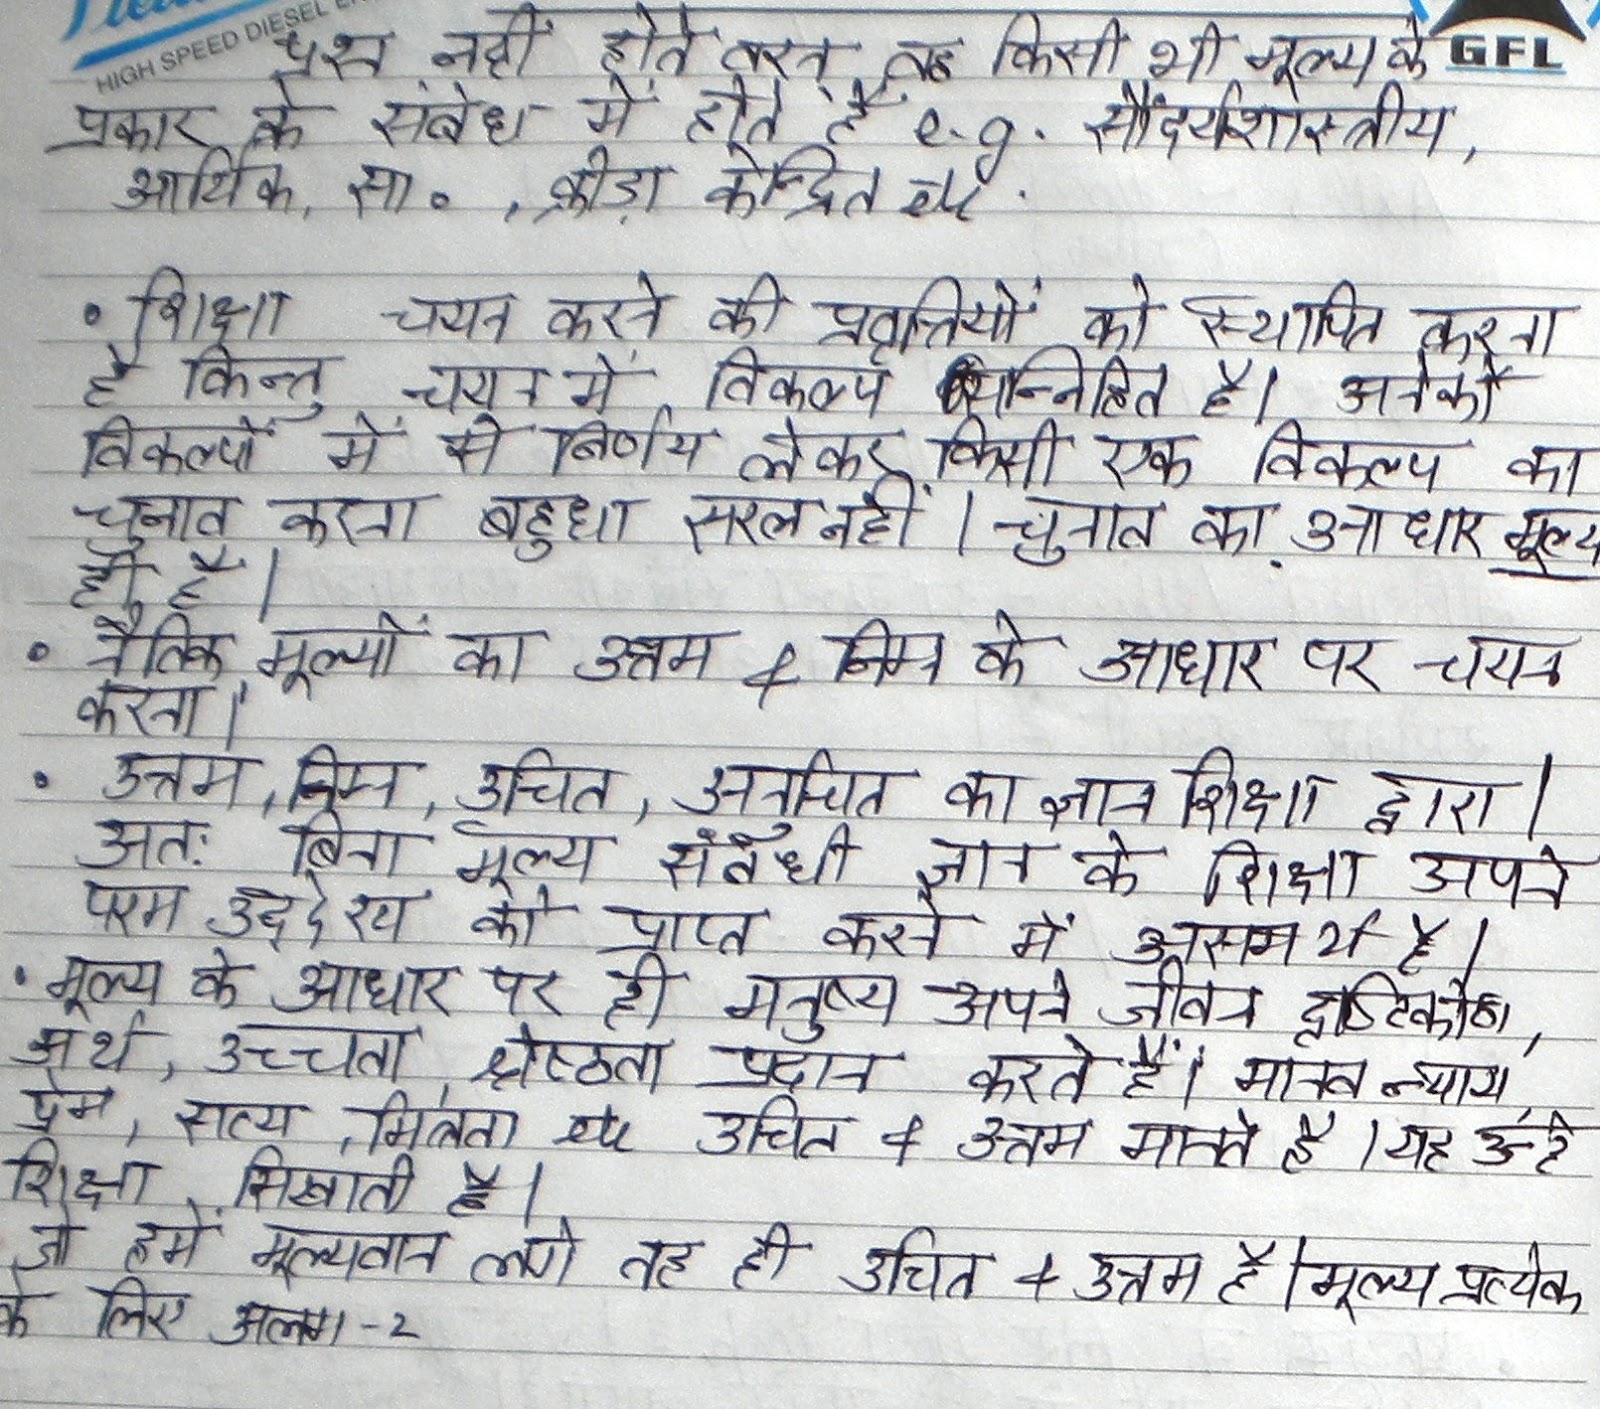 HIGH SPEED DIESEL
GFL
प्रश्न नहीं होते वरन् वह किसी भी मूल्य के
प्रकार के संबंध में होते हैं e.g. सौंदर्यशास्त्रीय,
आर्थिक, सा०, क्रीड़ा केन्द्रित etc.
• शिक्षा चयन करने की प्रवृत्तियों को स्थापित करना
है किन्तु चयन में विकल्प सन्निहित है। अनेकों
विकल्पों में से निर्णय लेकर किसी एक विकल्प का
चुनाव करना बहुधा सरल नहीं। चुनाव का आधार मूल्य
ही है।
• नैतिक मूल्यों का उत्तम & निम्न के आधार पर चयन
करना।
• उत्तम, निम्न, उचित, अनुचित का ज्ञान शिक्षा द्वारा।
अतः बिना मूल्य संबंधी ज्ञान के शिक्षा अपने
परम उद्देश्य को प्राप्त करने में असमर्थ है।
• मूल्य के आधार पर ही मनुष्य अपने जीवन दृष्टिकोण,
अर्थ, उच्चता, श्रेष्ठता प्रदान करते हैं। मानव न्याय,
प्रेम, सत्य, मित्रता etc उचित & उत्तम मानते है। यह उन्हे
शिक्षा सिखाती है।
जो हमें मूल्यवान लगे वह ही उचित & उत्तम है। मूल्य प्रत्येक
के लिए अलग-2